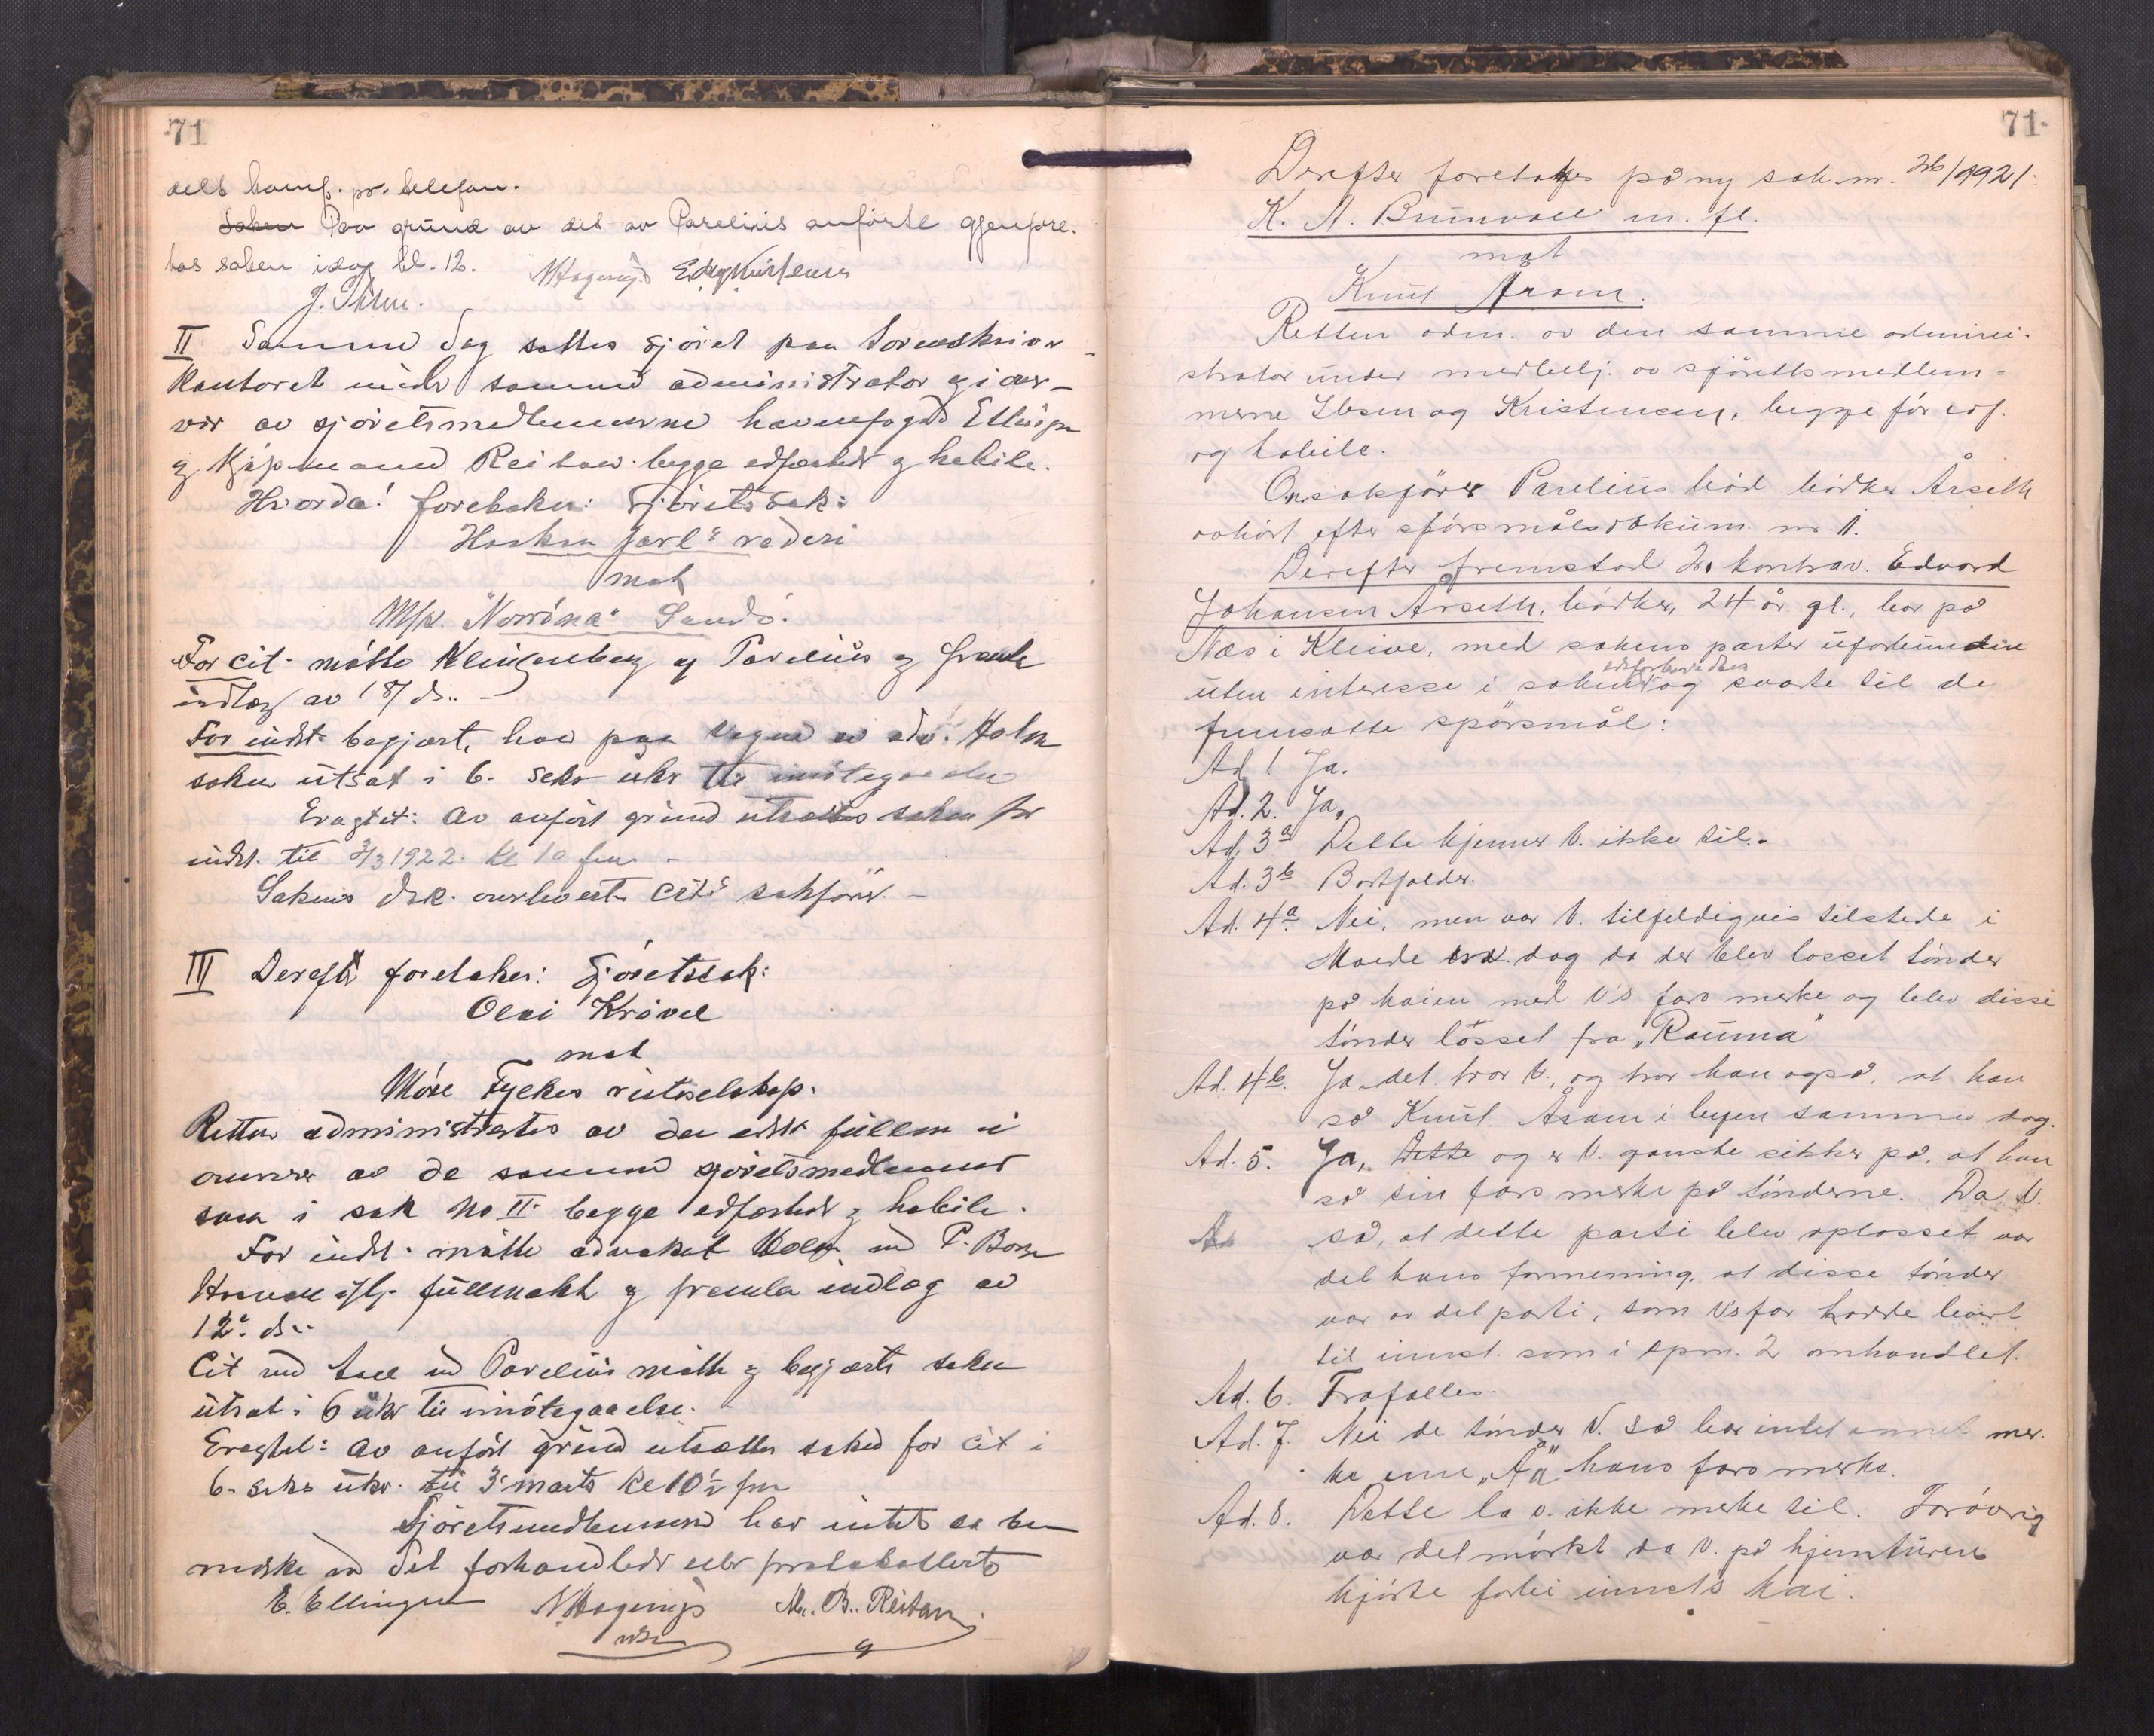 71
delt konf. pr. telefon.
Saken Paa grund av det av Parelius anførte gjenopre-
tas saken idag kl. 12.
II Samme dag sattes sjøret paa Sorenskriver-
kontoret under samme administrator og i over-
vær av sjøretsmedlemmerne havnefoged Ellingsen
og Kjøpmand Reitan begge edfæstede og habile.
Hvorda! foretokes: Sjøretssak:
Haakon Jarl's rederi
mot
M/k. "Norröna" Sandö.
For cit. møtte Klingenberg og Parelius og fremla
indlæg av 18/ ds..-
For indst. begjært, han paa vegne av adv. Holm
saken utsat i 6 seks uker til imøtegaaelse
Eragtet: Av anført grund utsættes saken for
indst. til 3/3 1922. Kl 10 fm -
Sakens dok. overlevert Cits sakfører. -
III Derefter foretokes: Sjøretssak:
Olai Krøvel
mot
Møre Fylkes ruteselskap.
Retten administrertes av den edsv. fuldm. i
overvær av de samme sjøretsmedlemmer
som i sak No II begge edfæstede og habile.
For indst. møtte advokat Holm ved P. Borse
fullmakt og fremla indlæg av
12. ds..
Cit ved ved Parelius møtte og begjærte saken
utsat i 6 uker til imøtegaaelse.
Eragtet: Av anført grund utsættes saken for cit i
6- seks uker. til 3 marts Kl 10 1/2 fm
Sjøretsmedlemmene har intet at be-
merke ved det forhandlede eller protokollerte
E. Ellingsen M. B. Reitan

71
Derefter foretokes på ny sak nr. 26/1921.
K. A. Brunvoll m. fl.
mot
Knut Åram.
Retten adm. av den samme admini-
strator under medhelj. av sjørettsmedlem-
merne Ibsen og Kristensen, begge før edf.
og habile.
O.r.sakfører Parelius bød bødker Årseth
avhört efter spörsmålsdokum. nr. 1.
Derefter fremstod 2. kontrav. Edvard
Johansen Årseth, bödker, 24 år gl., bor på
Næs i Kleive, med sakens parter uforbunden
uten interesse i saken edsforberedtes og svarte til de
fremsatte spörsmål:
Ad 1 Ja.
Ad. 2. Ja,
Ad. 3a Dette kjenner V. ikke til.-
Ad. 3b Bortfalder.
Ad. 4a Nei, men var V. tilfeldigvis tilstede i
Molde dag da der blev losset tönder
på kaien med V's fars merke og blev disse
tönder lösset fra „Rauma"
Ad. 4b. Ja det tror V., og tror han også, at han
så Knut Åram i byen samme dag.
Ad. 5. Ja, Dette og er V. ganske sikker på, at han
så sin fars merke på tönderne. Da V.
så, at dette parti blev oplosset var
det hans formening, at disse tönder
var av det parti, som V's far hadde levert
til innst. som i spm. 2 omhandlet.
Ad. 6. Frafalles.
Ad. 7. Nei de tönder V. så bar intet annet mer-
ke enn „ÅÅ" hans fars merke.
Ad. 8. Dette la v. ikke merke til. Forövrig
var det mörkt da V. på hjemturen
kjörte forbi innst's kai.